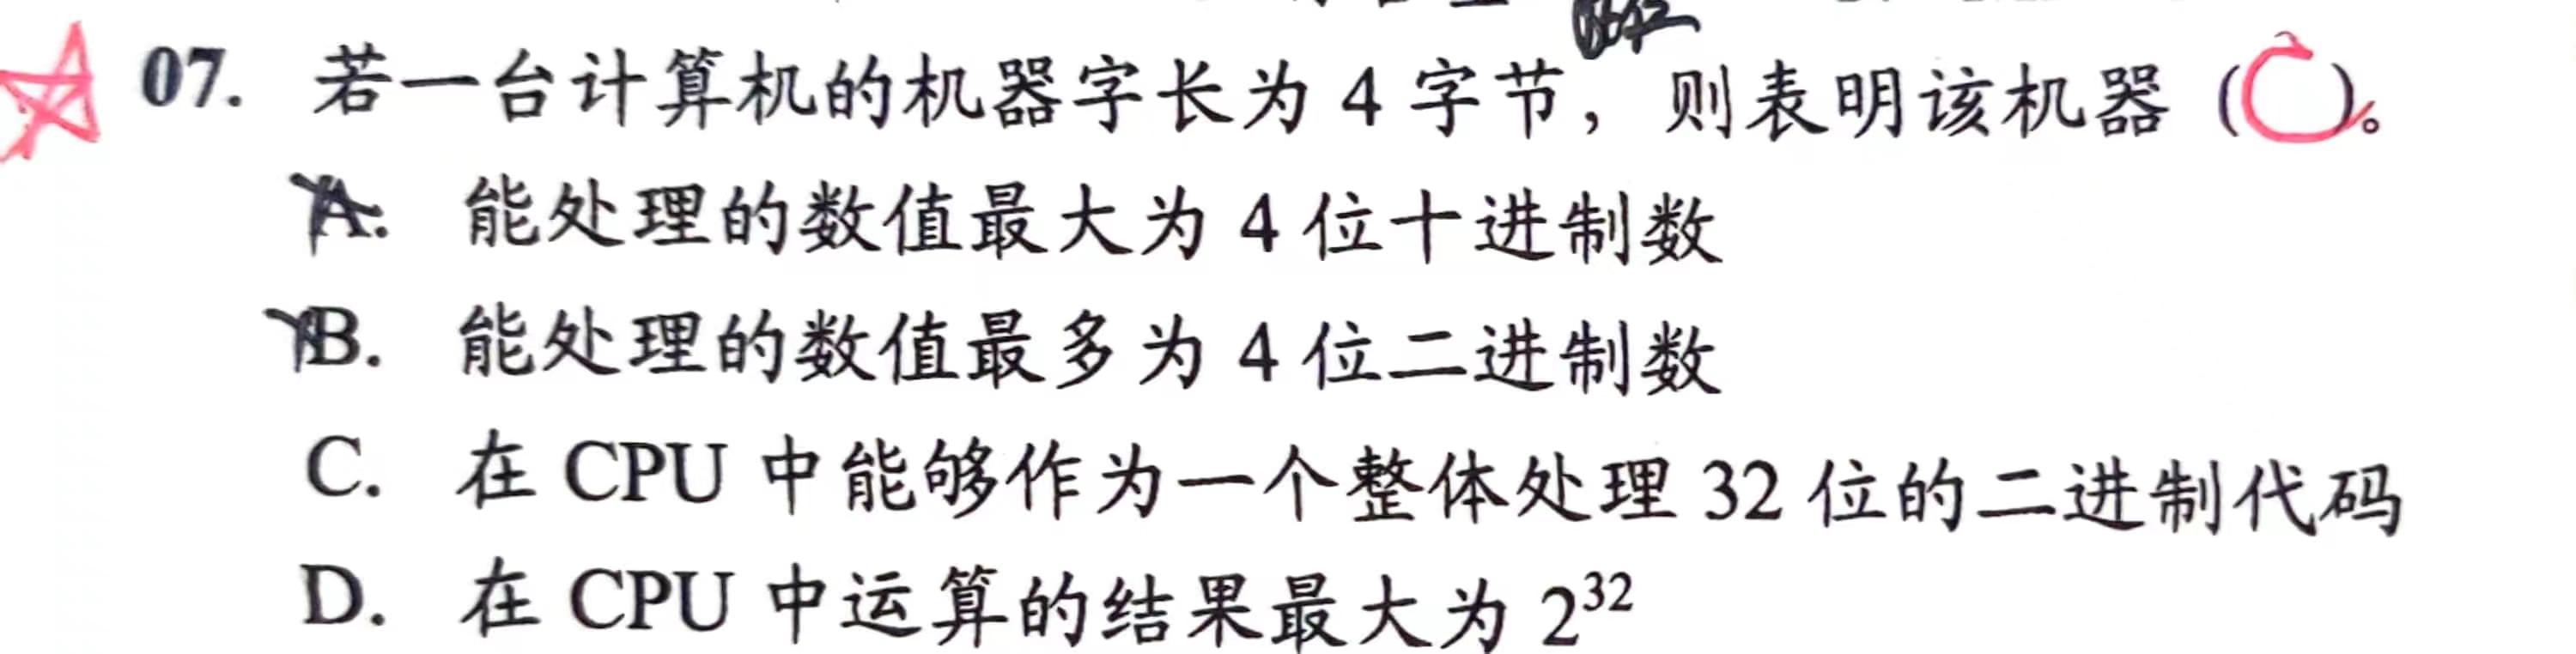 07. 若一台计算机的机器字长为 4 字节，则表明该机器（C）。
A. 能处理的数值最大为 4 位十进制数
B. 能处理的数值最多为 4 位二进制数
C. 在 CPU 中能够作为一个整体处理 32 位的二进制代码
D. 在 CPU 中运算的结果最大为 2³²